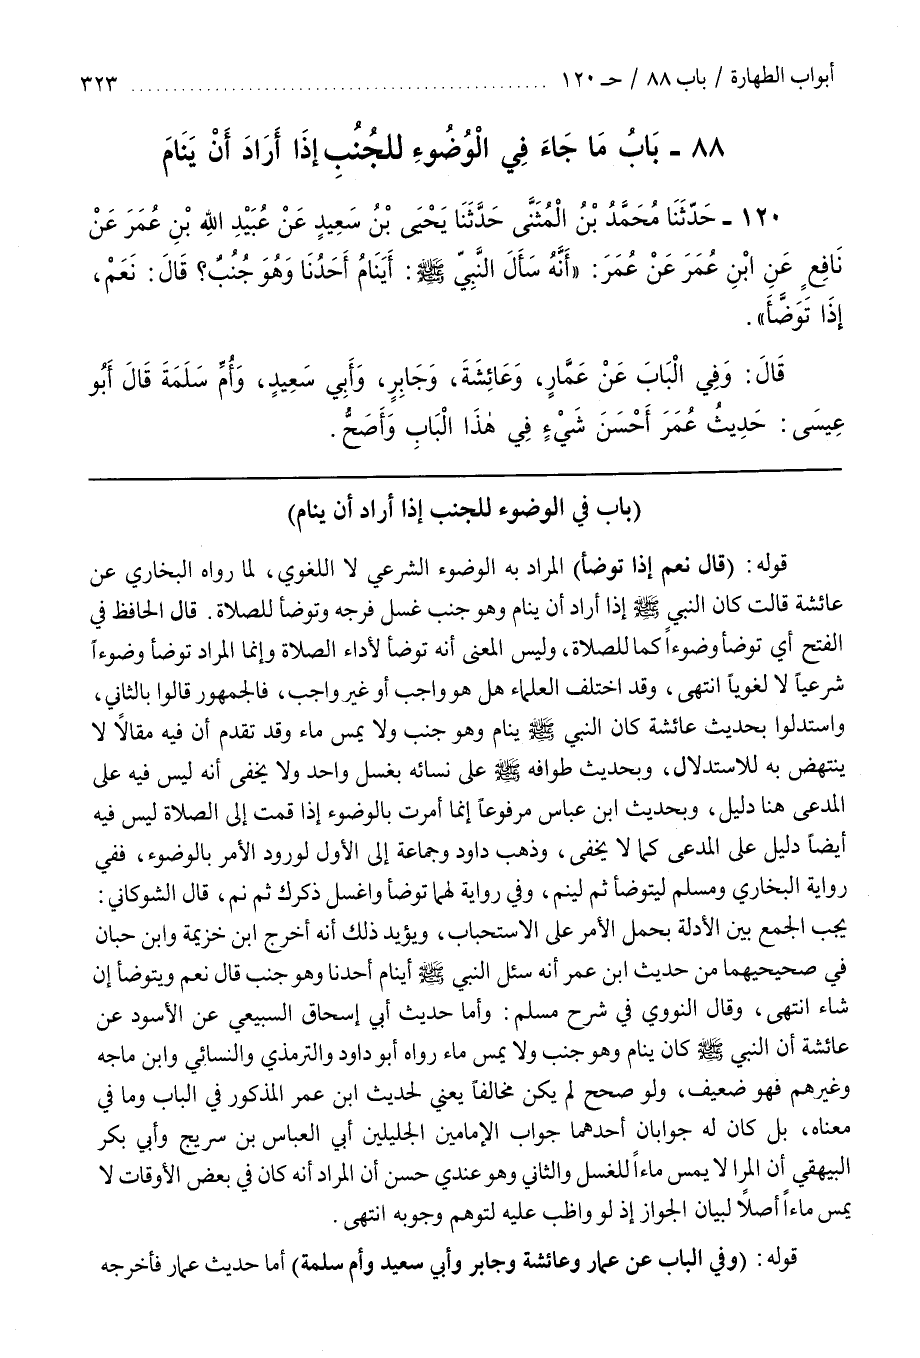 أبواب الطهارة / باب ٨٨ / حـ ١٢٠ ................................................ ٣٢٣
٨٨ ـ بَابُ مَا جَاءَ فِي الْوُضُوءِ للجُنُبِ إذَا أَرَادَ أَنْ يَنَامَ
١٢٠ ـ حَدّثَنَا مُحَمَّدُ بْنُ الْمُثَنَّى حَدَّثَنَا يَحْيَى بْنُ سَعِيدٍ عَنْ عُبَيْدِ اللهِ بْنِ عُمَرَ عَنْ
نَافِعٍ عَنِ ابْنِ عُمَرَ عَنْ عُمَرَ: «أَنَّهُ سَأَلَ النَّبِيّ ﷺ: أَيَنَامُ أَحَدُنَا وَهُوَ جُنُبٌ؟ قَالَ: نَعَمْ،
إِذَا تَوَضَّأَ».
قَالَ: وَفِي الْبَابَ عَنْ عَمَّارٍ، وَعَائِشَةَ، وَجَابِرٍ، وَأَبِي سَعِيدٍ، وَأُمِّ سَلَمَةَ قَالَ أَبُو
عِيسَى: حَدِيثُ عُمَرَ أَحْسَنَ شَيْءٍ فِي هٰذَا الْبَابِ وَأَصَحُّ.
(باب في الوضوء للجنب إذا أراد أن ينام)
قوله: (قال نعم إذا توضأ) المراد به الوضوء الشرعي لا اللغوي، لما رواه البخاري عن
عائشة قالت كان النبي ﷺ إذا أراد أن ينام وهو جنب غسل فرجه وتوضأ للصلاة. قال الحافظ في
الفتح أي توضأ وضوءاً كما للصلاة، وليس المعنى أنه توضأ لأداء الصلاة وإنما المراد توضأ وضوءاً
شرعياً لا لغوياً انتهى، وقد اختلف العلماء هل هو واجب أو غير واجب، فالجمهور قالوا بالثاني،
واستدلوا بحديث عائشة كان النبي ﷺ ينام وهو جنب ولا يمس ماء وقد تقدم أن فيه مقالاً لا
ينتهض به للاستدلال، وبحديث طوافه ﷺ على نسائه بغسل واحد ولا يخفى أنه ليس فيه على
المدعى هنا دليل، وبحديث ابن عباس مرفوعاً إنما أمرت بالوضوء إذا قمت إلى الصلاة ليس فيه
أيضاً دليل على المدعى كما لا يخفى، وذهب داود وجماعة إلى الأول لورود الأمر بالوضوء، ففي
رواية البخاري ومسلم ليتوضأ ثم لينم، وفي رواية لهما توضأ واغسل ذكرك ثم نم، قال الشوكاني:
يجب الجمع بين الأدلة بحمل الأمر على الاستحباب، ويؤيد ذلك أنه أخرج ابن خزيمة وابن حبان
في صحيحيهما من حديث ابن عمر أنه سئل النبي ﷺ أينام أحدنا وهو جنب قال نعم ويتوضأ إن
شاء انتهى، وقال النووي في شرح مسلم: وأما حديث أبي إسحاق السبيعي عن الأسود عن
عائشة أن النبي ﷺ كان ينام وهو جنب ولا يمس ماء رواه أبو داود والترمذي والنسائي وابن ماجه
وغيرهم فهو ضعيف، ولو صحح لم يكن مخالفاً يعني لحديث ابن عمر المذكور في الباب وما في
معناه، بل كان له جوابان أحدهما جواب الإمامين الجليلين أبي العباس بن سريج وأبي بكر
البيهقي أن المرا لا يمس ماءاً للغسل والثاني وهو عندي حسن أن المراد أنه كان في بعض الأوقات لا
يمس ماءاً أصلاً لبيان الجواز إذ لو واظب عليه لتوهم وجوبه انتهى.
قوله: (وفي الباب عن عمار وعائشة وجابر وأبي سعيد وأم سلمة) أما حديث عمار فأخرجه